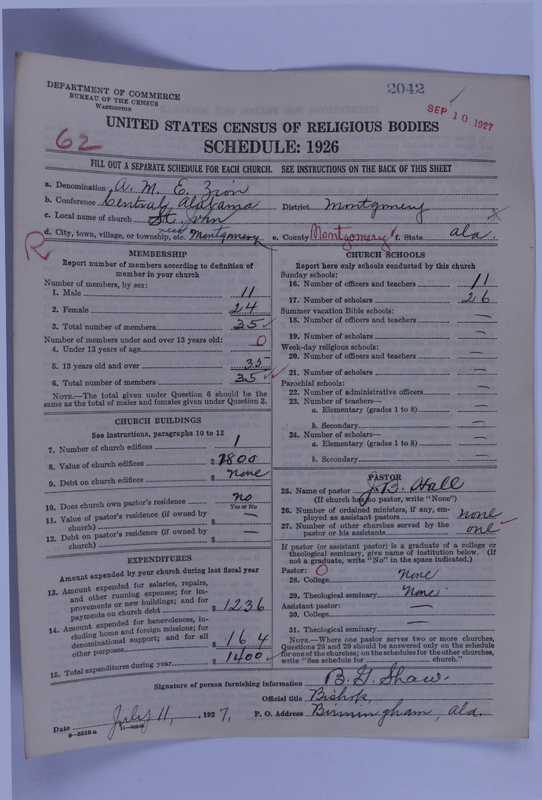 2042
DEPARTMENT OF COMMERCE
BUREAU OF THE CENSUS
WASHINGTON
SEP 10 1927
UNITED STATES CENSUS OF RELIGIOUS BODIES
62
SCHEDULE: 1926
FILL OUT A SEPARATE SCHEDULE FOR EACH CHURCH. SEE INSTRUCTIONS ON THE BACK OF THIS SHEET
a. Denomination A. M. E. Zion
b. Conference Central Alabama District Montgomery
c. Local name of church St. John
d. City, town, village, or township, etc. near Montgomery e. County Montgomery f. State Ala.
R
MEMBERSHIP
Report number of members according to definition of member in your church
Number of members, by sex:
1. Male 11
2. Female 24
3. Total number of members 35
Number of members under and over 13 years old:
4. Under 13 years of age 0
5. 13 years old and over 35
6. Total number of members 35
NOTE.—The total given under Question 6 should be the same as the total of males and females given under Question 3.
CHURCH BUILDINGS
See instructions, paragraphs 10 to 12
7. Number of church edifices 1
8. Value of church edifices $1800
9. Debt on church edifices $ none
10. Does church own pastor's residence no
Yes or No
11. Value of pastor's residence (if owned by church) $ —
12. Debt on pastor's residence (if owned by church) $ —
EXPENDITURES
Amount expended by your church during last fiscal year
13. Amount expended for salaries, repairs, and other running expenses; for improvements or new buildings; and for payments on church debt $1236
14. Amount expended for benevolences, including home and foreign missions; for denominational support; and for all other purposes $164
15. Total expenditures during year $1400
CHURCH SCHOOLS
Report here only schools conducted by this church
Sunday schools:
16. Number of officers and teachers 11
17. Number of scholars 26
Summer vacation Bible schools:
18. Number of officers and teachers —
19. Number of scholars —
Week-day religious schools:
20. Number of officers and teachers —
21. Number of scholars —
Parochial schools:
22. Number of administrative officers —
23. Number of teachers—
a. Elementary (grades 1 to 8) —
b. Secondary —
24. Number of scholars—
a. Elementary (grades 1 to 8) —
b. Secondary —
PASTOR
25. Name of pastor J. B. Hall
(If church has no pastor, write "None")
26. Number of ordained ministers, if any, employed as assistant pastors none
27. Number of other churches served by the pastor or his assistants one
If pastor (or assistant pastor) is a graduate of a college or theological seminary, give name of institution below. (If not a graduate, write "No" in the space indicated.)
Pastor: 0
28. College None
29. Theological seminary None
Assistant pastor:
30. College —
31. Theological seminary —
NOTE.—Where one pastor serves two or more churches, Questions 28 and 29 should be answered only on the schedule for one of the churches; on the schedules for the other churches, write "See schedule for church."
Signature of person furnishing information B. G. Shaw.
Official title Bishop
Date July 11, 1927. P. O. Address Birmingham, Ala.